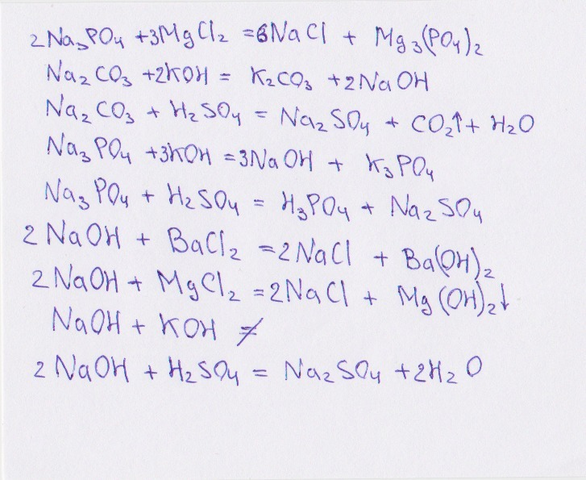 2Na₃PO₄ + 3MgCl₂ = 6NaCl + Mg₃(PO₄)₂
Na₂CO₃ + 2KOH = K₂CO₃ + 2NaOH
Na₂CO₃ + H₂SO₄ = Na₂SO₄ + CO₂↑ + H₂O
Na₃PO₄ + 3KOH = 3NaOH + K₃PO₄
Na₃PO₄ + H₂SO₄ = H₃PO₄ + Na₂SO₄
2NaOH + BaCl₂ = 2NaCl + Ba(OH)₂
2NaOH + MgCl₂ = 2NaCl + Mg(OH)₂↓
NaOH + KOH ≠
2NaOH + H₂SO₄ = Na₂SO₄ + 2H₂O